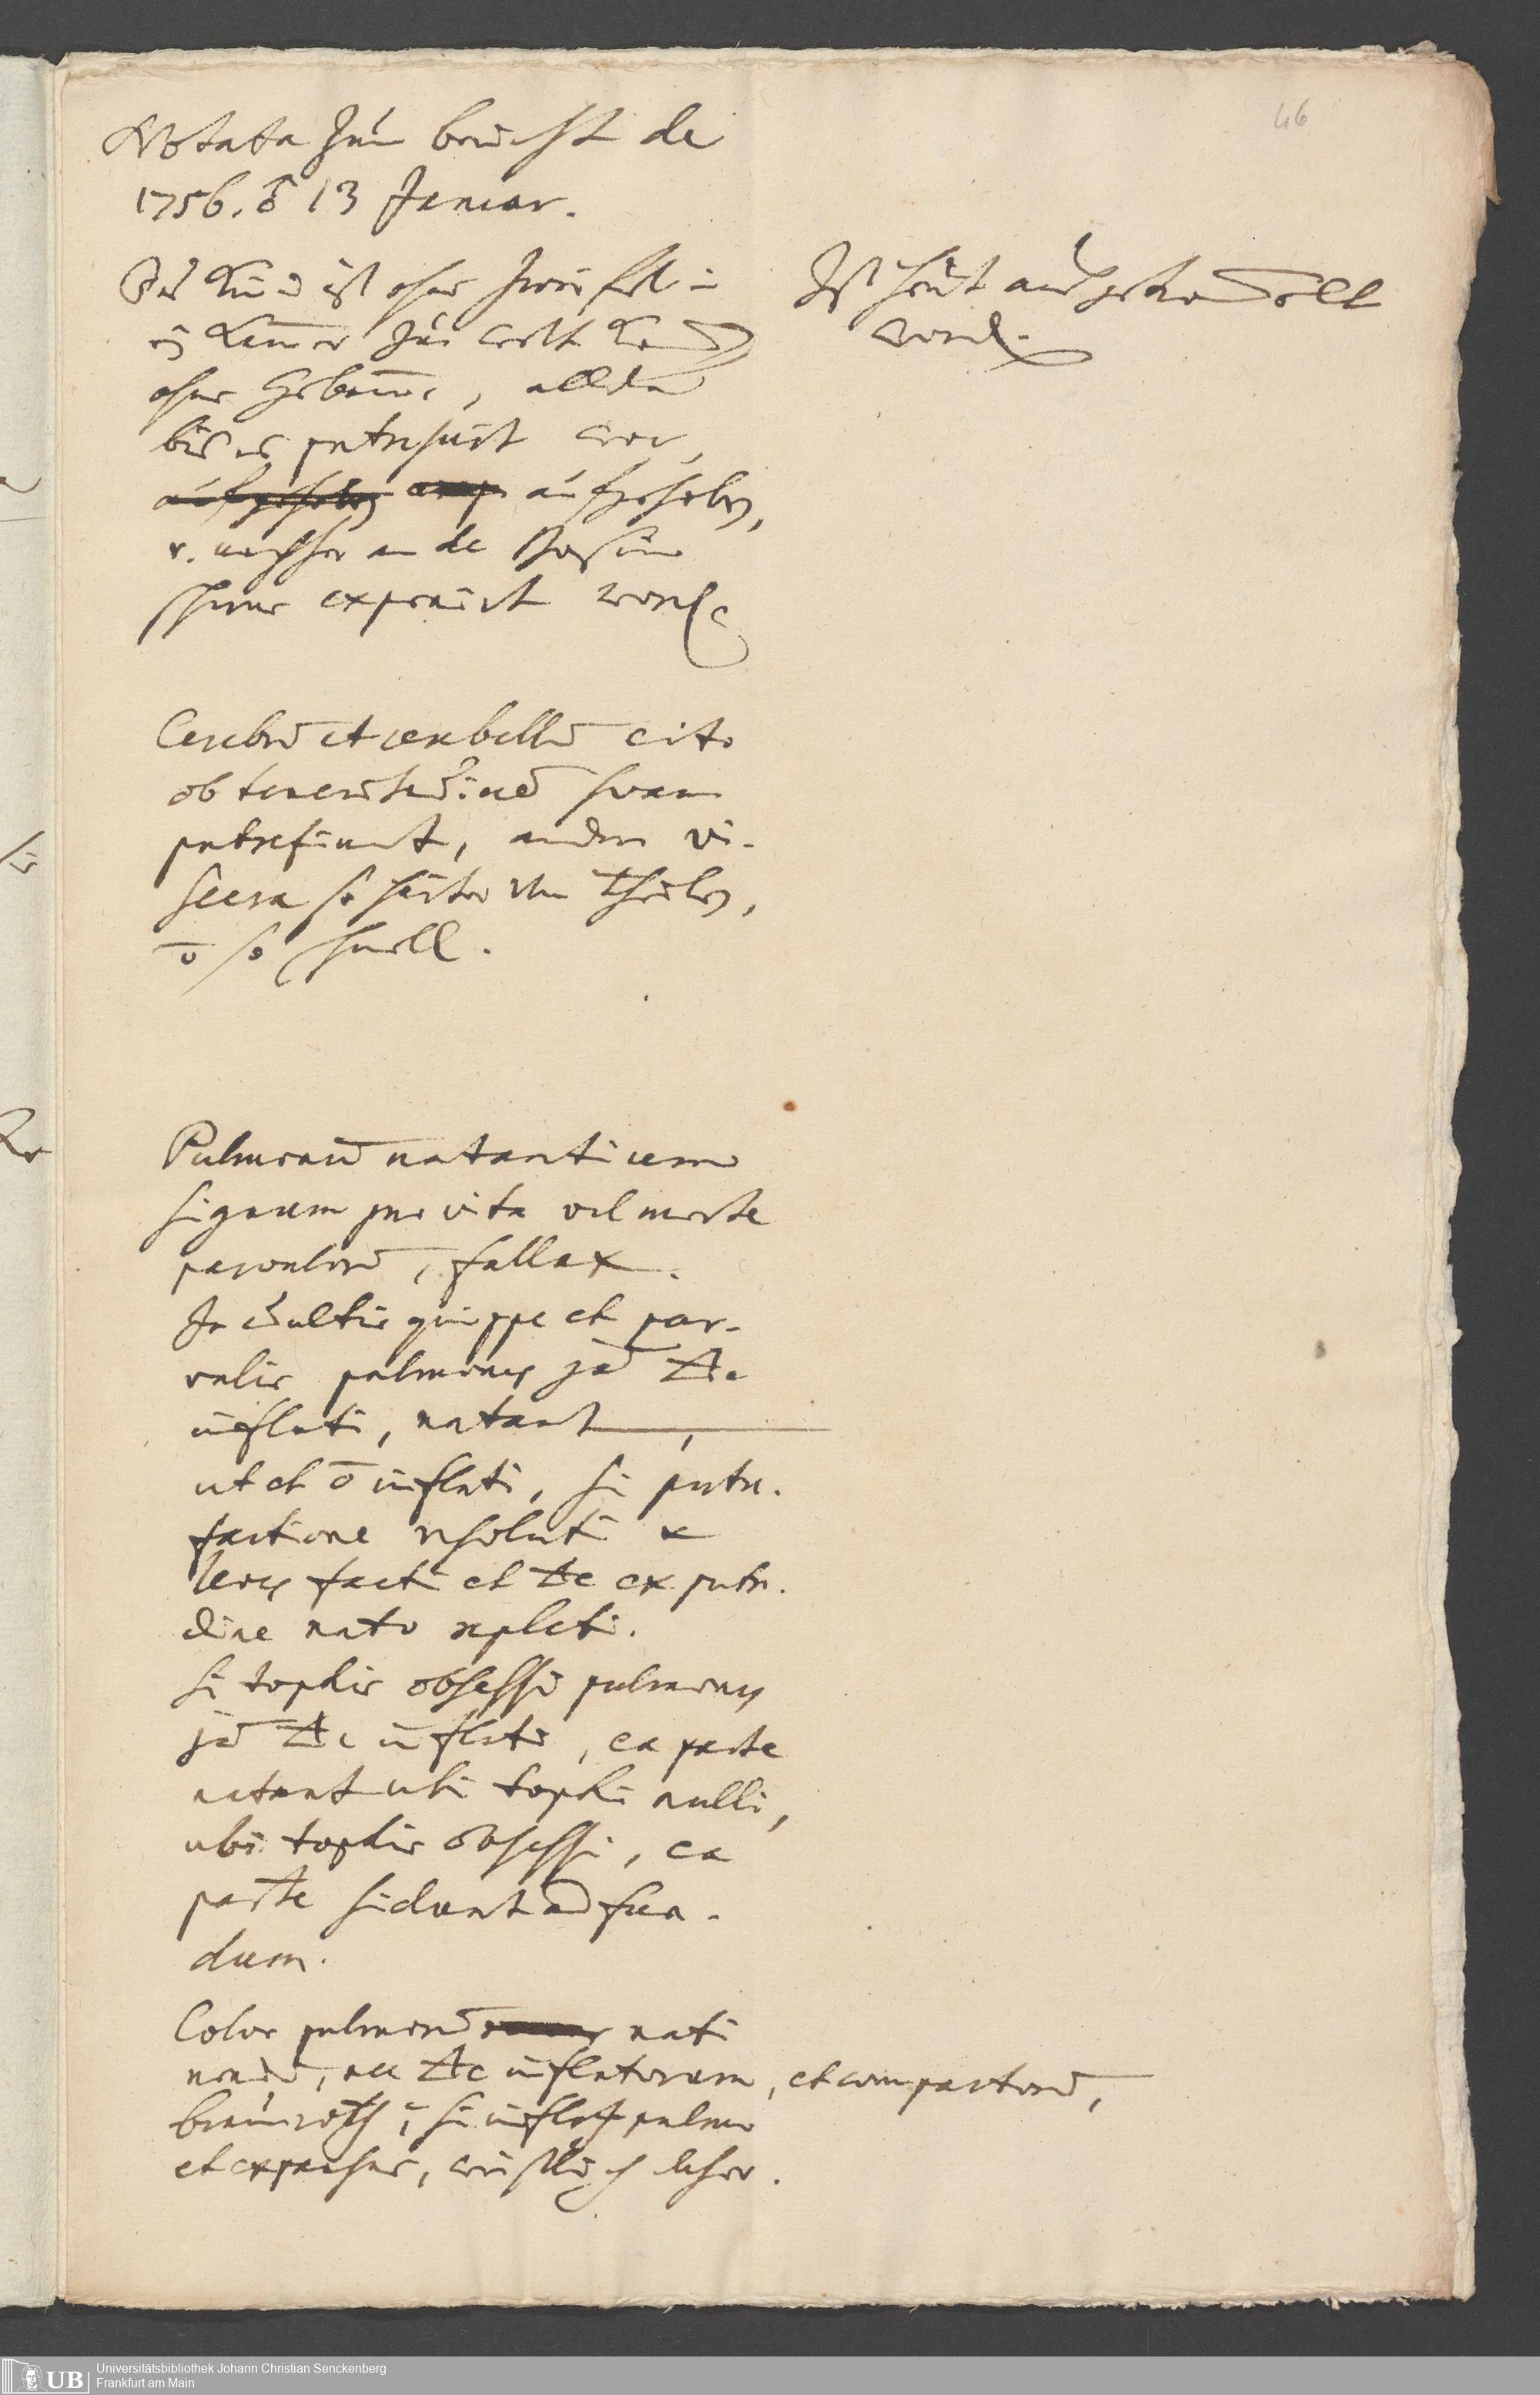 46
Notata zum bericht de
1756. ♂ 13 Januar.
Das Kind ist ohne Zweifel in
ej Kammer zur welt kom̄en
ohne Hebam̄e, allda
bis es putrescirt war,
aufgehoben aufgehoben,
u. nachher an de
exponirt worden
Ist heut ausgehandelt
worden
Cerebrū et cerebellū cito
ob teneritudinē suam
putrefiunt, andere vi-
scera so härter von Theilen,
ō so schnell.
Pulmonū natantium
signum pro vita vel morte
parvulorū, fallax.
In adultis quippe et par-
vulis pulmones jā 🜁e
inflati, natant,
ut et ō inflati, si putre-
factione resoluti &
leves facti et 🜁e ex putre-
dine nato repleti.
Si tophis obsessi pulmones
jā 🜁e inflati, ea parte
natant ubi tophi nulli,
ubi tophis obsessi, ea
parte sidunt ad fun-
dum.
Color pulmonū nati
nondū, nec 🜁e inflatorum, et compactorū,
braunroth; si inflat pulmo
et expansus, weißlich
UB
Universitätsbibliothek Johann Christian Senckenberg
Frankfurt am Main